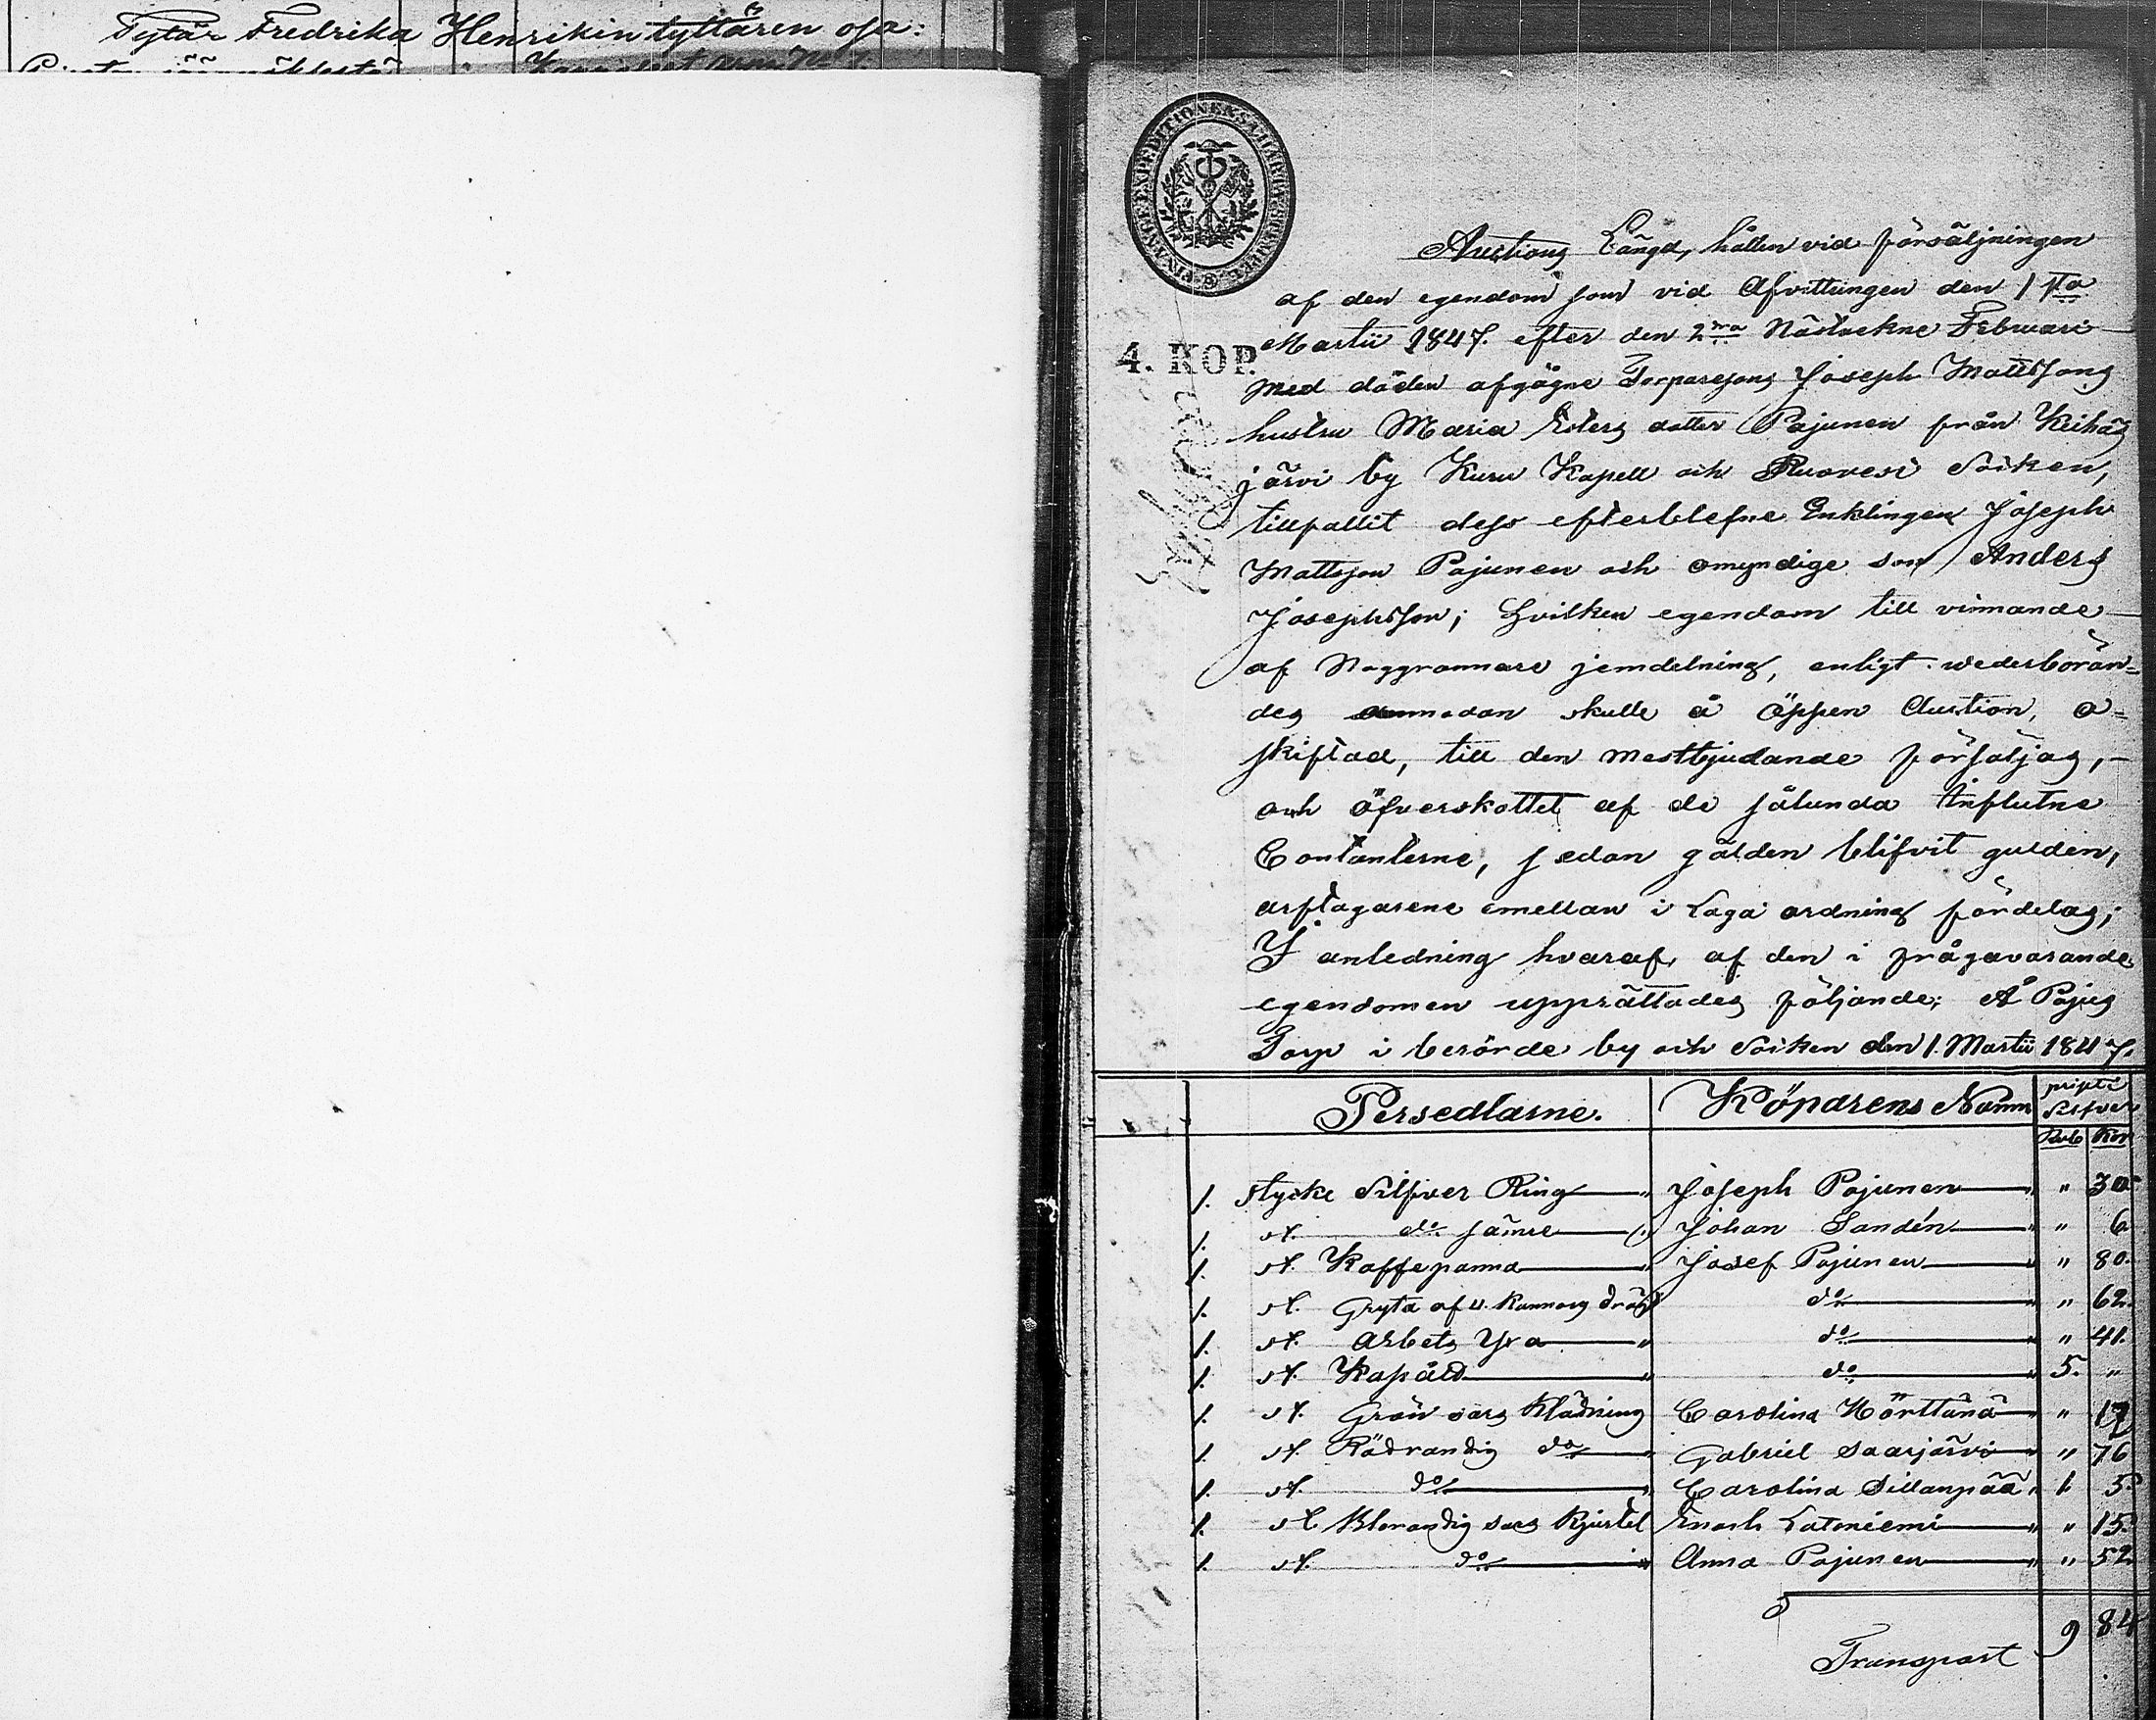 Tytär Fredrika Henrikin tyttären osa:
4. KOP.
Auctions Längd, hållen vid försäljningen
af den egendom som vid Afvittringen den 1sta
Martii 1847. efter den 2dra Nästvekne Februari
med döden afgågne Torparesons Joseph Mattssons
hustru Maria Eders dotter Pajunen från Keihäs
järvi by Kuru Kapell och Ruovesi Socken,
tillfallit dess efterblefne Enklingen Joseph
Mattsson Pajunen och omyndige son Anders
Josephsson; Hvilken egendom till vinnande
af Noggrannare jemdelning, enligt wederbörän-
des skulle å öppen Auction, o-
skiftad, till den mestbjudande försäljas,-
och öfverskottet af de sålunda influtne
Contanterne, sedan gälden blifvit gulden,
arftagarene emellan i Laga ordning fördelas;
I anledning hvaraf, af den i frågavarande
egendomen upprättades följande; Å Pajus
Torp i berörde by och Socken den 1. Martii 1847.
Persedlarne. Köparens Namn
Silfver
Rub Kop
1. stycke Silfver Ring " Joseph Pajunen " " 30
1. st. do sämre Johan Sandén " " 6
1. st. Kaffepanna " Josef Pajunen " " 80.
1. st. Gryta af 4. Kannors drägt do " " 62.
1. st. Arbets Yxa " do " " 41.
1. st. Kapåld " do " 5. "
1. st. Grön sars Klädning Carolina Hörttänä " " 17
1. st. Rödrandig do " Gabriel Saarjärvi " " 76
1. st. do " Carolina Sillanpää " 1. 5.
1. st. Blorandig sars Kjortel Enoch Latoniemi " " 15.
1. st. do " Anna Pajunen " " 52
Transport 9 84